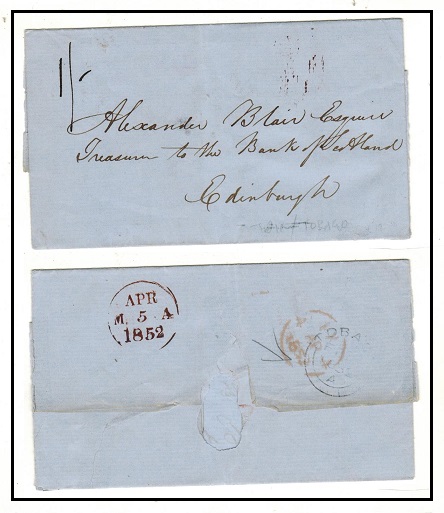 1/-
Alexander Blair Esquire
Treasurer to the Bank of Scotland
Edinburgh
TOBAGO
APR
M. 5 A
1852
OBA